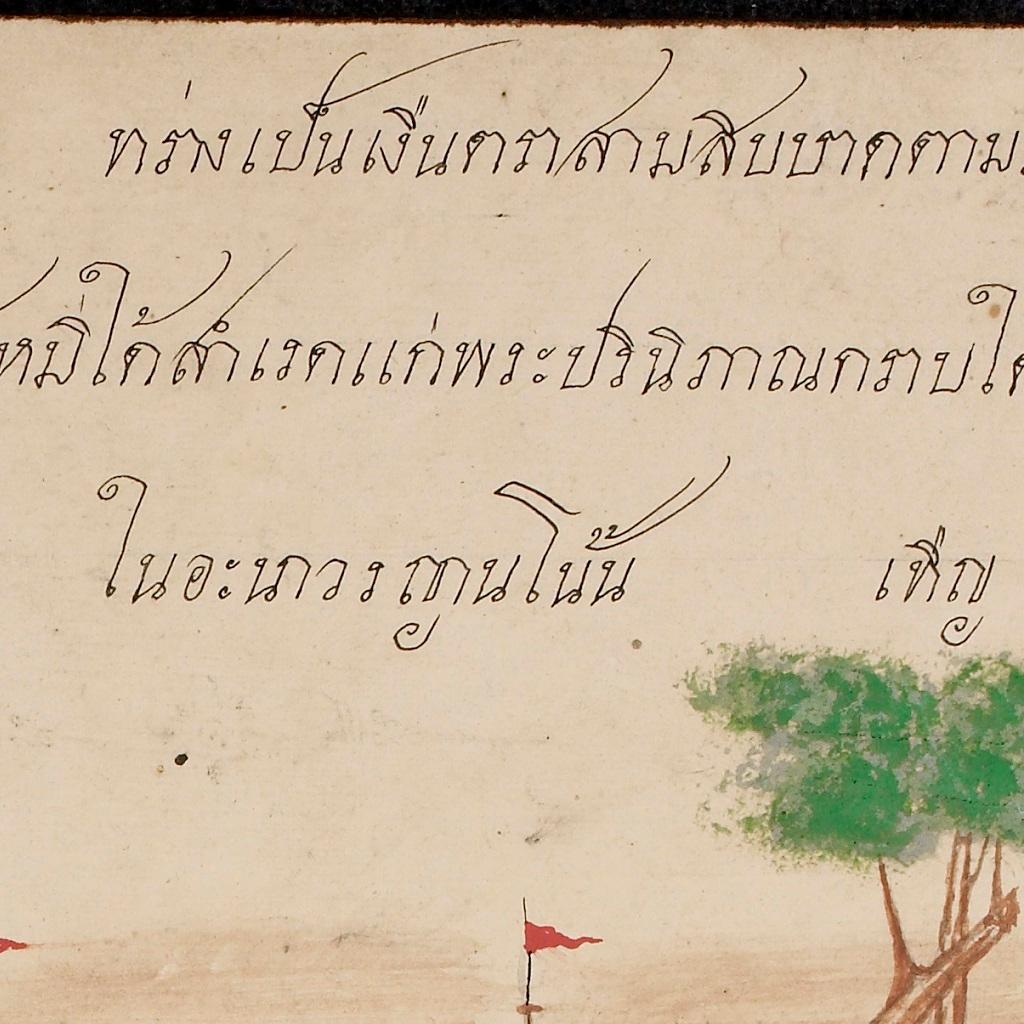 ทร่างเปนเงินตราสามสิบบาดตาม
หมี่ได้สำเรดแก่พระปรินิภาณกราบได
ในอะนาวรญานโน้น เทิญ